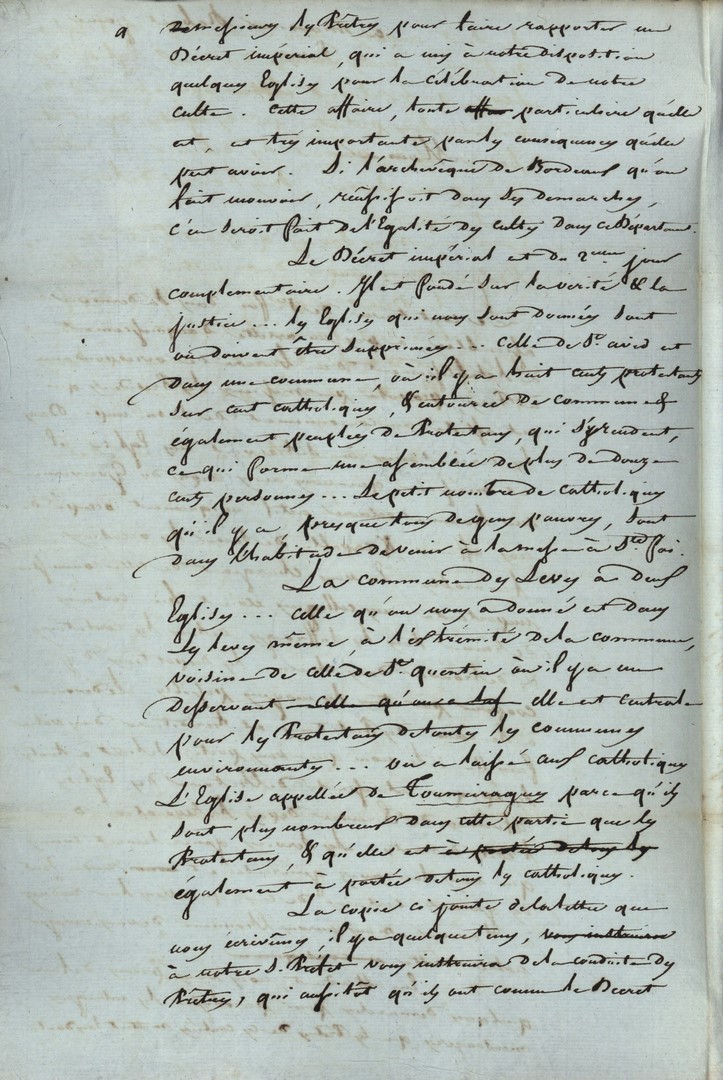 a de messieurs les Prêtres pour faire rapporter un
Décret impérial, qui a mis à notre disposition
quelques Eglises pour la célébration de notre
culte. Cette affaire, toute particulière qu'elle
est, est très importante par les conséquences qu'elle
peut avoir. Si l'archevêque de Bordeaux qu'on
fait mouvoir, réussissoit dans ses demarches,
c'en seroit fait de l'Egalité des cultes dans ce Départemt.
Le Décret impérial est du 2eme jour
complementaire. Il est fondé sur la verité & la
justice ... les Eglises qui nous sont données sont
ou doivent être supprimées ... celle de St. avit est
dans une commune, où il y a huit cents protestants
sur cent catholiques, & entourée de communes
également peuplées de Protestans, qui s'y rendent,
ce qui forme une assemblée de plus de douze
cents personnes ... Le petit nombre de catholiques
qu'il y a, presque tous de gens pauvres, sont
dans l'habitude de venir à la messe à Ste foi.
La commune des Leves a deux
Eglises ... celle qu'on nous a donné est dans
les leves même, à l'extrémité de la commune,
voisine de celle de St. quentin où il y a un
desservant elle est centrale
pour les Protestans de toutes les communes
environnantes ... on a laissé aux catholiques
L'Eglise appellée de Toumeragues parce qu'ils
sont plus nombreux dans cette partie que les
Protestans, & qu'elle est à portée de tous les
également à portée de tous les catholiques.
La copie ci jointe de la lettre que
nous écrivîmes, il y a quelque tems, vous instruira
à notre S. Préfet vous instruira de la conduite des
Prêtres, qui aussitôt qu'ils ont connu le Decret